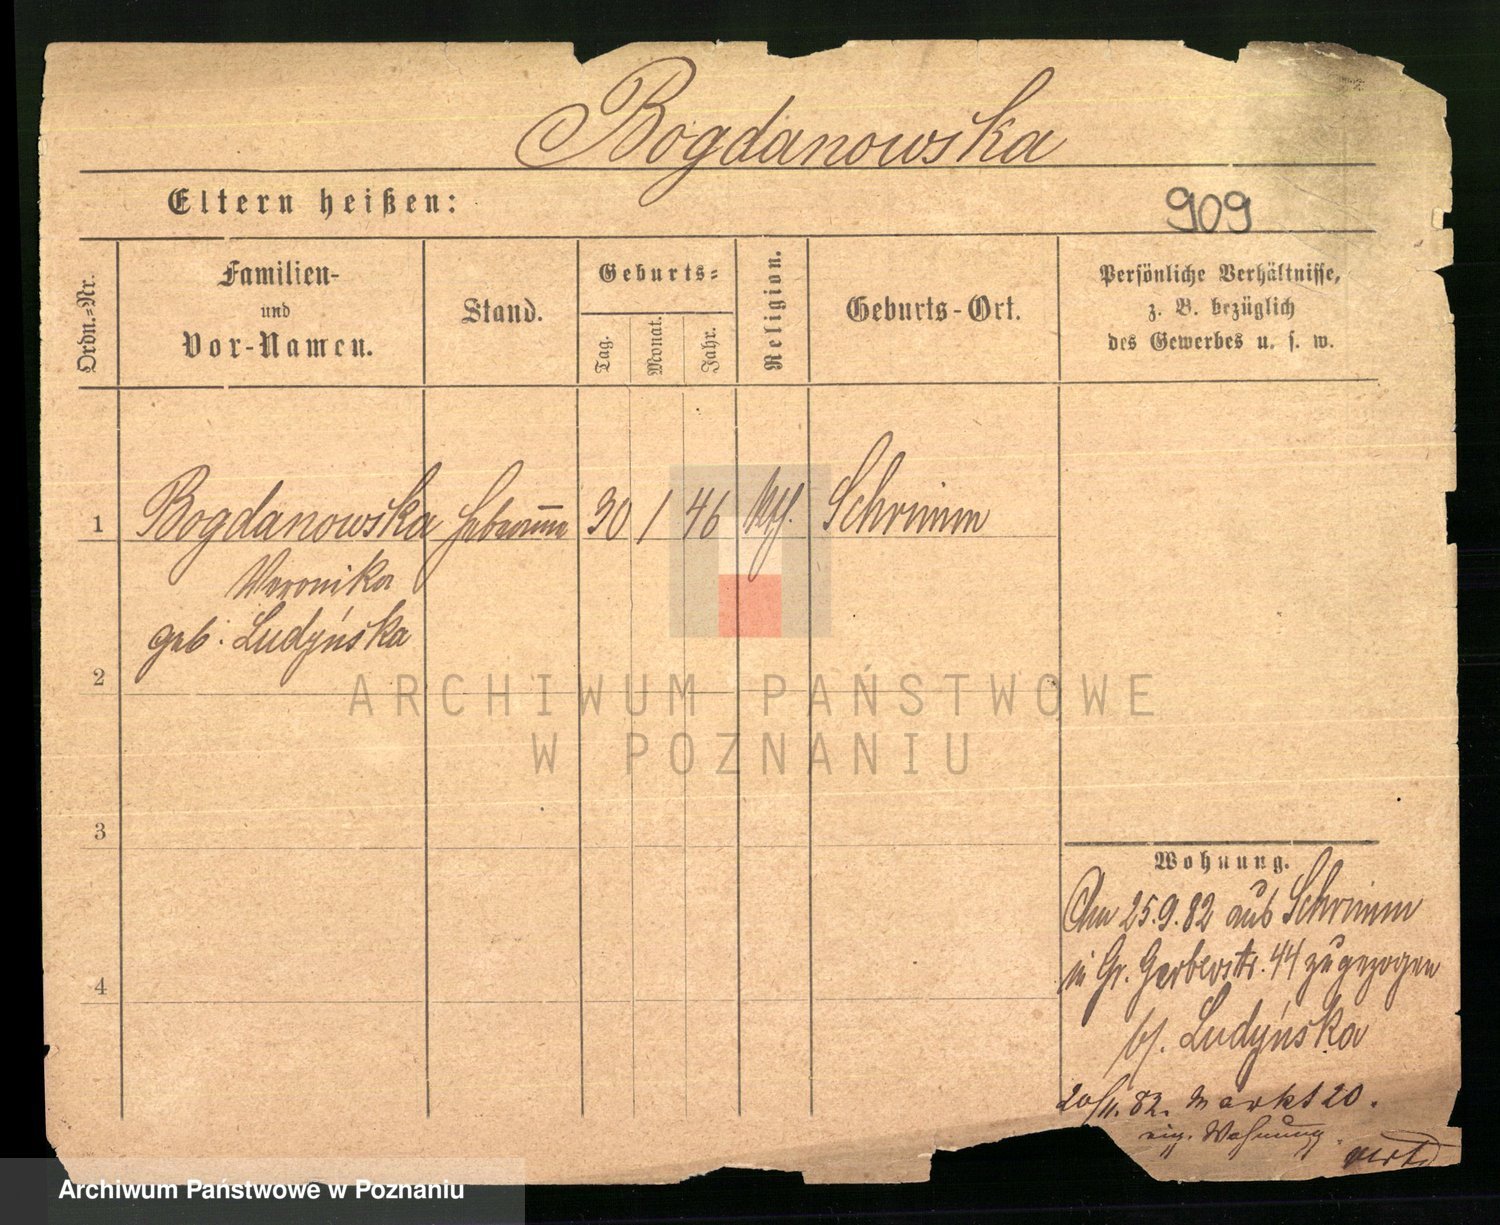 Bogdanowska
Eltern heißen:
909
Ordn.-Nr.
Familien-
und
Vor-Namen.
Stand.
Geburts-
Tag.
Monat.
Jahr.
Religion.
Geburts-Ort.
Persönliche Verhältnisse,
z. B. bezüglich
des Gewerbes u. s. w.
1 Bogdanowska Hebamme 30 1 46 kth. Schrimm
Veronika
geb. Ludyńska
2
3
4
Wohnung.
Am 25.9.82 aus Schrimm
in Gr. Gerberstr. 44 zugezogen
bei Ludyńska
20/11. 82. Markt 20.
eig. Wohnung.
ARCHIWUM PAŃSTWOWE
W POZNANIU
Archiwum Państwowe w Poznaniu